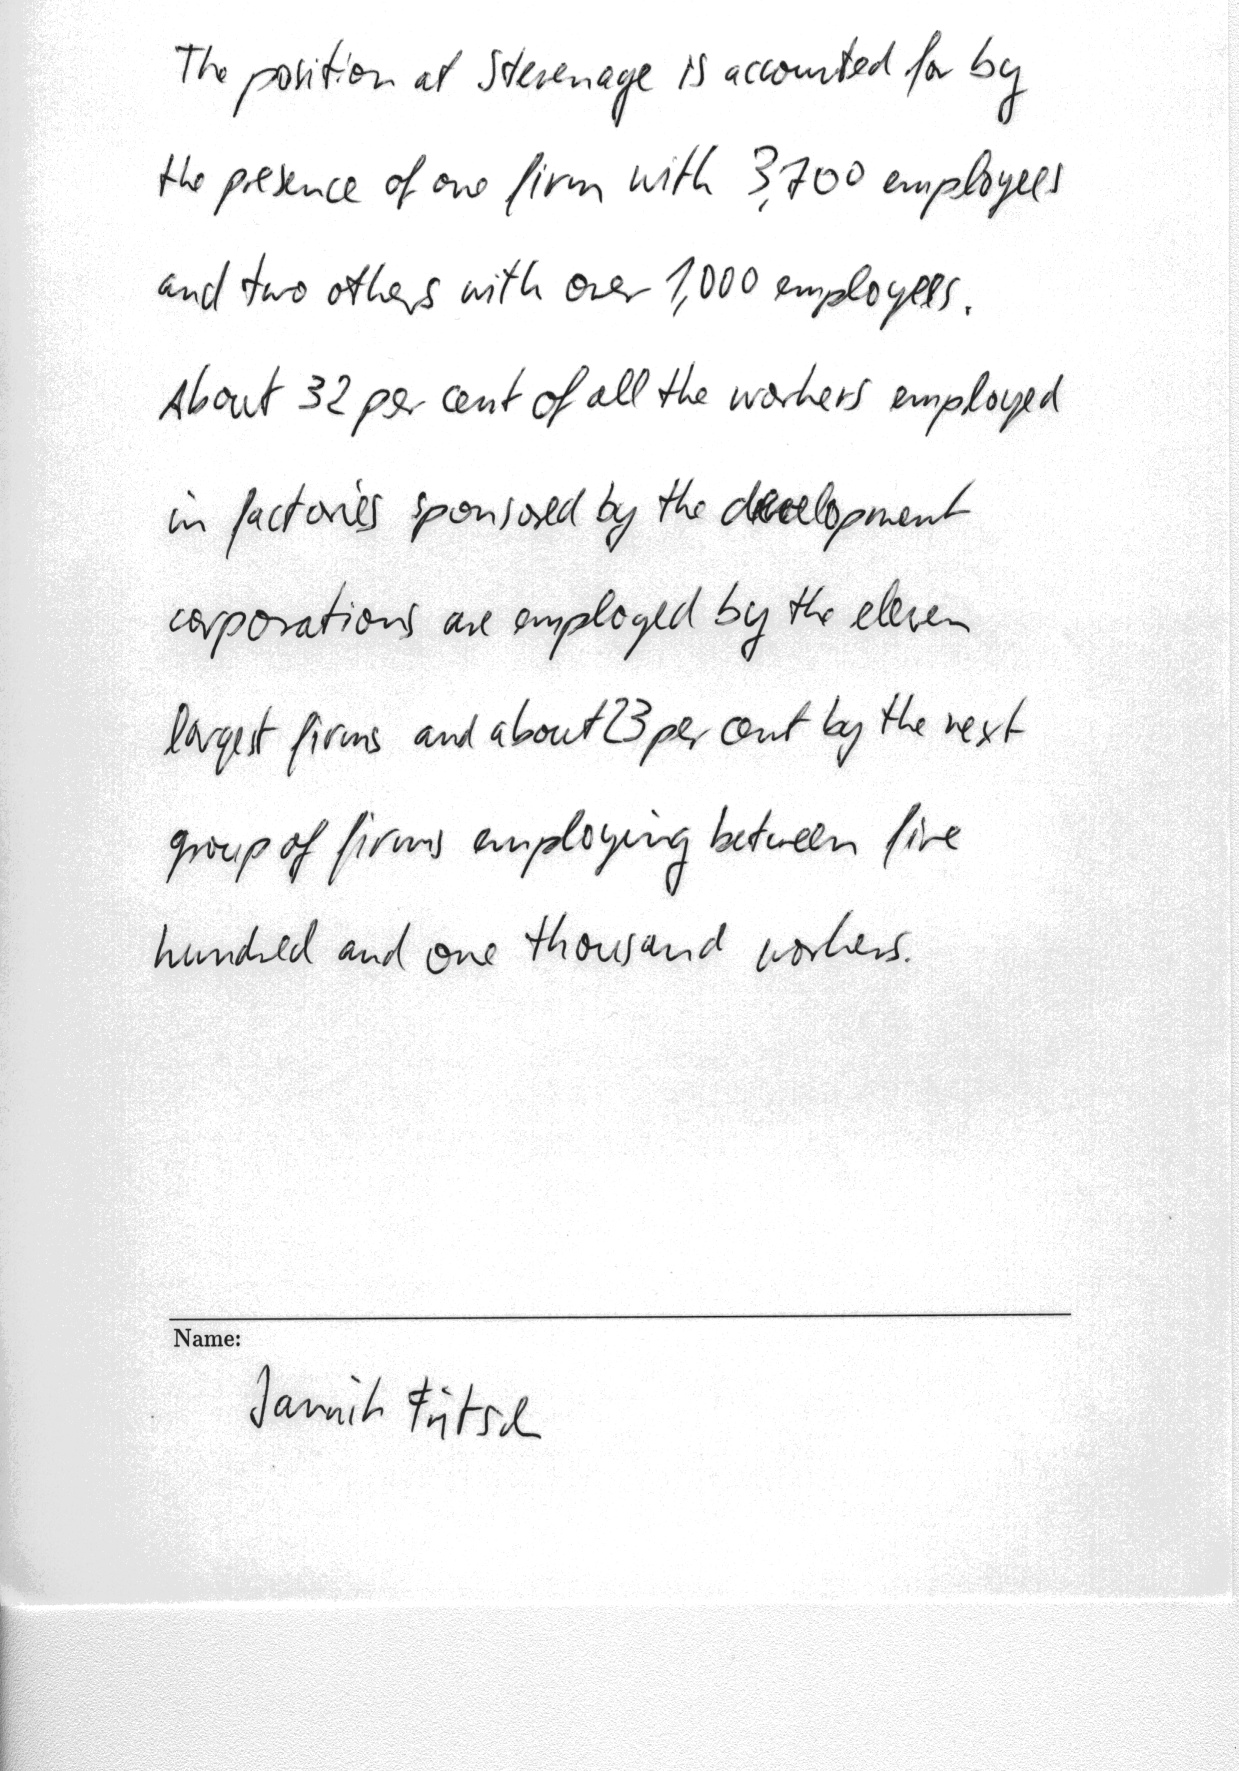 The position at Stevenage is accounted for by
the presence of one firm with 3,700 employees
and two others with over 1,000 employees.
About 32 per cent of all the workers employed
in factories sponsored by the development
corporations are employed by the eleven
largest firms and about 23 per cent by the next
group of firms employing between five
hundred and one thousand workers.
Name:
Jannik